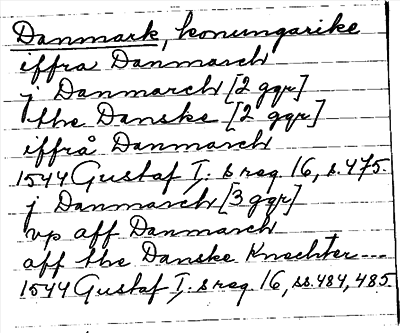 Danmark, konungarike
iffra Danmarch
j Danmarch [2 ggr]
the Danske [2 ggr]
iffrå Danmarch
1544 Gustaf I:s reg 16, s. 475.
j Danmarch [3 ggr]
vp aff Danmarch
aff the Danske Knechter---
1544 Gustaf I:s reg 16, ss. 484, 485.